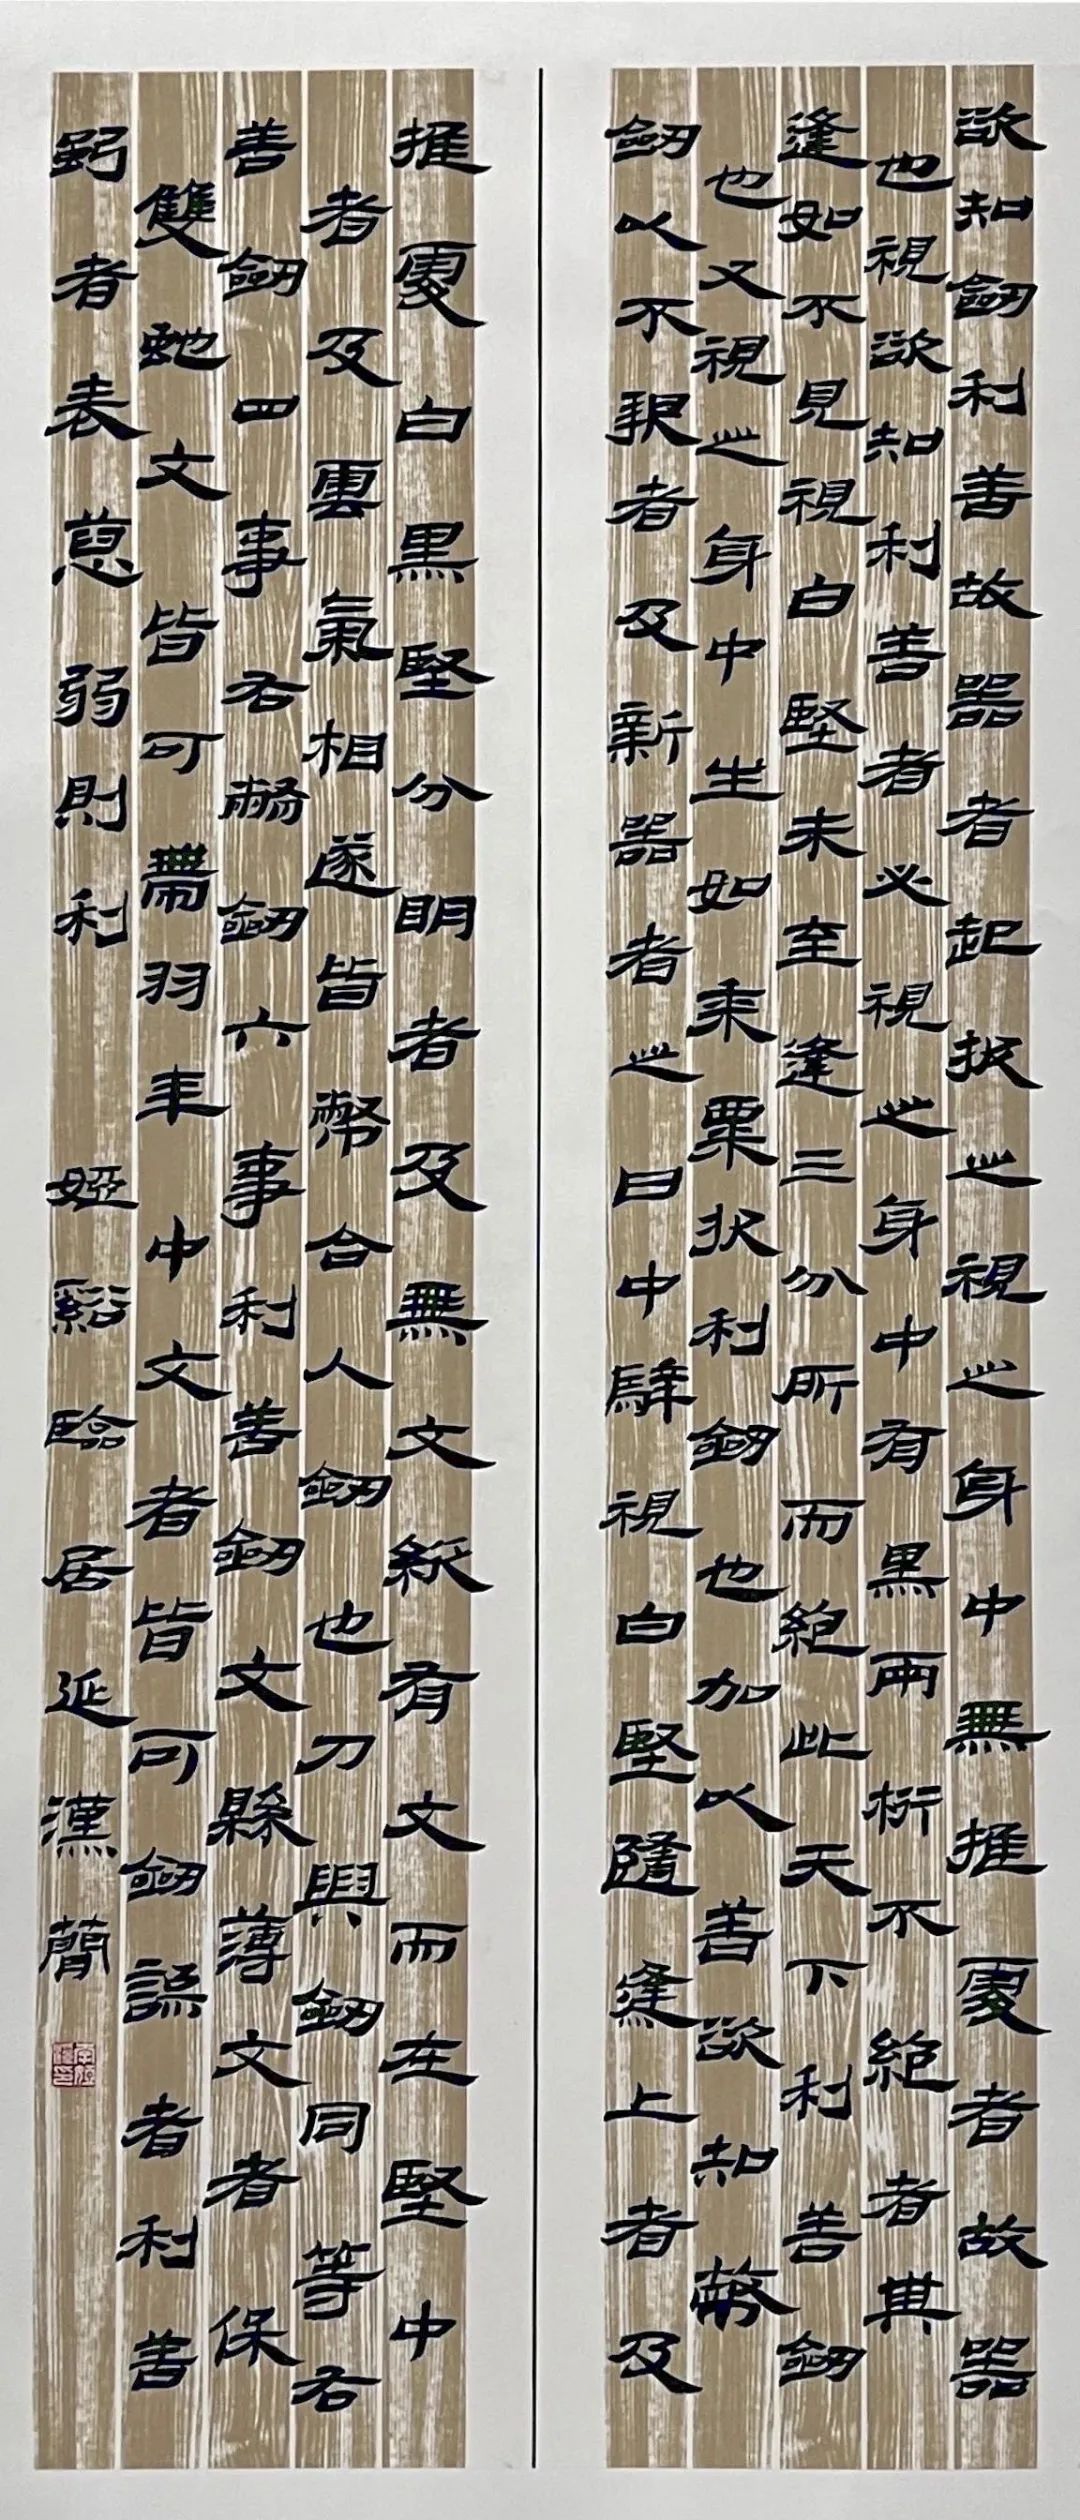 欲知劒利善故器者起拔之視之身中無推處者故器
也視欲知利善者必視之身中有黑兩桁不絕者其
逢如不見視白堅未至逢三分所而絕此天下利善劒
也又視之身中生如黍粟狀利劒也加以善欲知幣
劒以不報者及新器者之日中騂視白堅隨逢上者及
推處白黑堅分明者及無文縱有文而在堅中
者及雲氣相遂皆幣合人劒也刀與劒同等右
善劒四事右幣劒六事利善劒文縣薄文者保
雙蛇文皆可帶羽圭中文者皆可劒謡者利善
強者表恿弱則利 婭谿臨居延漢簡